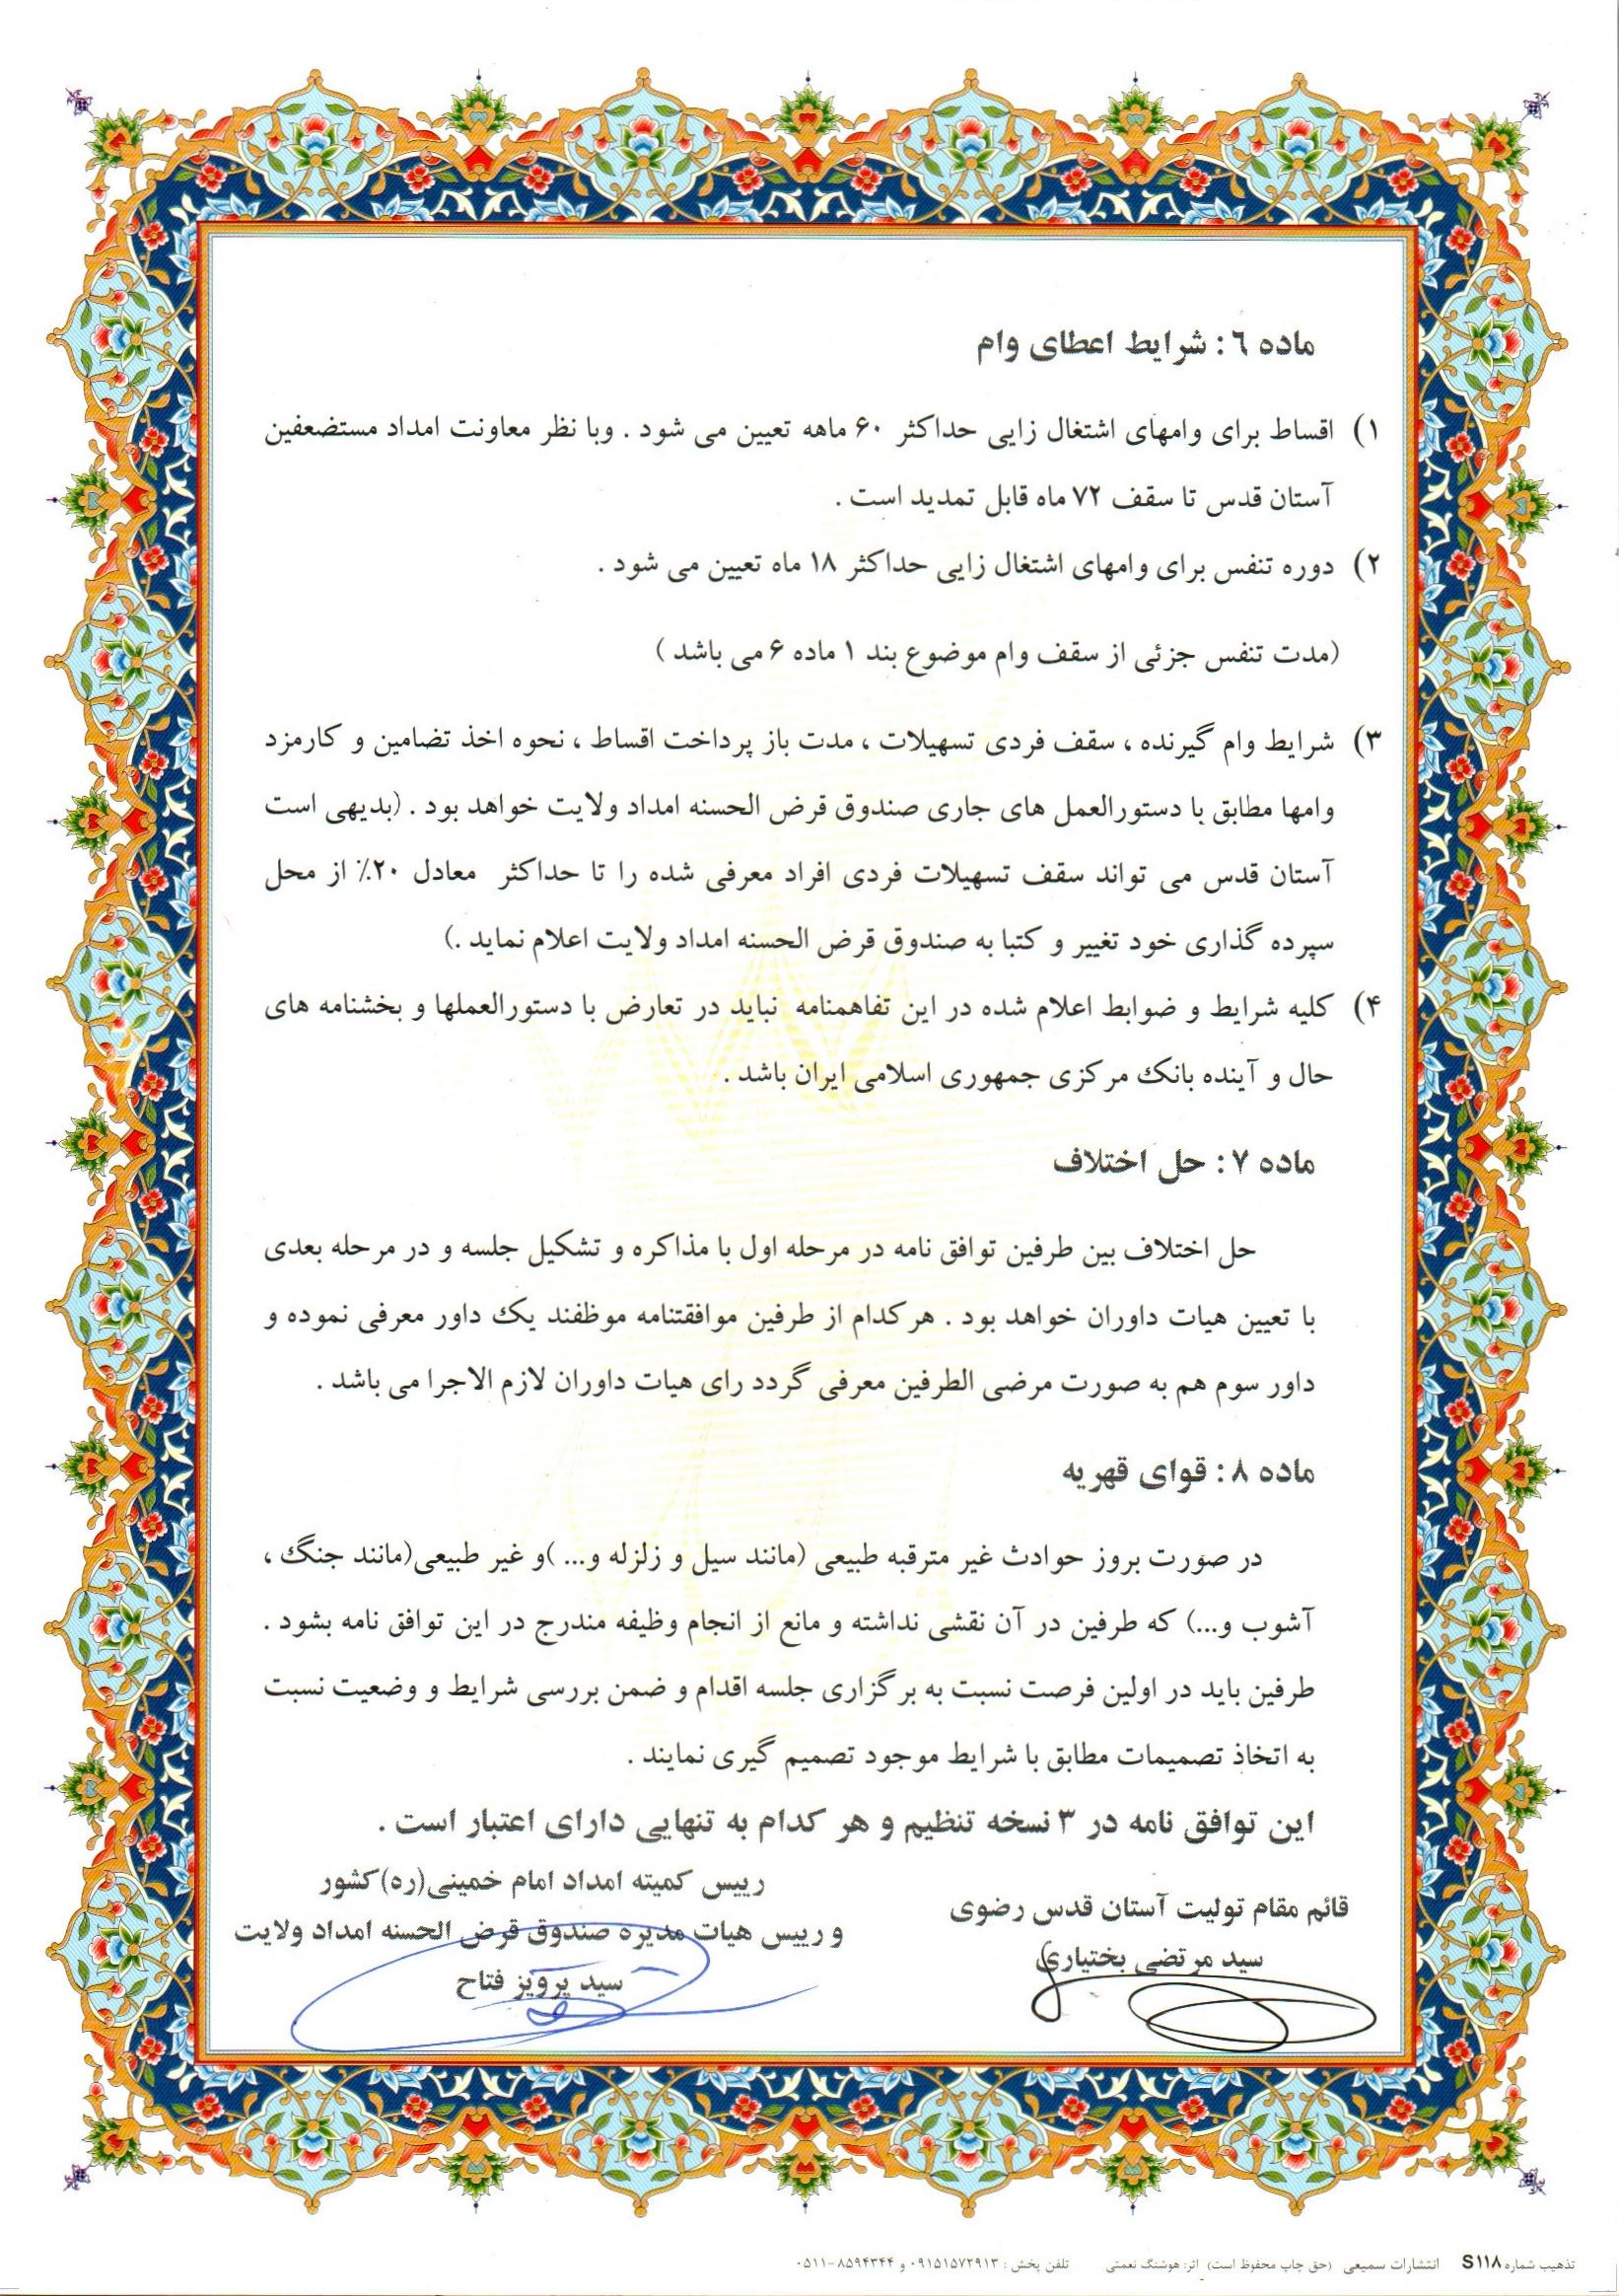 ماده ٦: شرایط اعطای وام
۱) اقساط برای وامهای اشتغال زایی حداکثر ۶۰ ماهه تعیین می شود . وبا نظر معاونت امداد مستضعفین
آستان قدس تا سقف ۷۲ ماه قابل تمدید است .
۲) دوره تنفس برای وامهای اشتغال زایی حداکثر ۱۸ ماه تعیین می شود .
(مدت تنفس جزئی از سقف وام موضوع بند ۱ ماده ۶ می باشد )
۳) شرایط وام گیرنده ، سقف فردی تسهیلات ، مدت باز پرداخت اقساط ، نحوه اخذ تضامین و کارمزد
وامها مطابق با دستورالعمل های جاری صندوق قرض الحسنه امداد ولایت خواهد بود . (بدیهی است
آستان قدس می تواند سقف تسهیلات فردی افراد معرفی شده را تا حداکثر معادل ۲۰٪ از محل
سپرده گذاری خود تغییر و کتبا به صندوق قرض الحسنه امداد ولایت اعلام نماید .)
۴) کلیه شرایط و ضوابط اعلام شده در این تفاهمنامه نباید در تعارض با دستورالعملها و بخشنامه های
حال و آینده بانک مرکزی جمهوری اسلامی ایران باشد .
ماده ۷: حل اختلاف
حل اختلاف بین طرفین توافق نامه در مرحله اول با مذاکره و تشکیل جلسه و در مرحله بعدی
با تعیین هیات داوران خواهد بود . هرکدام از طرفین موافقتنامه موظفند یک داور معرفی نموده و
داور سوم هم به صورت مرضی الطرفین معرفی گردد رای هیات داوران لازم الاجرا می باشد .
ماده ۸: قوای قهریه
در صورت بروز حوادث غیر مترقبه طبیعی (مانند سیل و زلزله و... )و غیر طبیعی(مانند جنگ ،
آشوب و...) که طرفین در آن نقشی نداشته و مانع از انجام وظیفه مندرج در این توافق نامه بشود .
طرفین باید در اولین فرصت نسبت به برگزاری جلسه اقدام و ضمن بررسی شرایط و وضعیت نسبت
به اتخاذ تصمیمات مطابق با شرایط موجود تصمیم گیری نمایند .
این توافق نامه در ۳ نسخه تنظیم و هر کدام به تنهایی دارای اعتبار است .
قائم مقام تولیت آستان قدس رضوی
سید مرتضی بختیاری
رییس کمیته امداد امام خمینی(ره)کشور
و رییس هیات مدیره صندوق قرض الحسنه امداد ولایت
سید پرویز فتاح
تذهیب شماره S۱۱۸ انتشارات سمیعی (حق چاپ محفوظ است) اثر: هوشنگ نعمتی تلفن پخش : ۰۹۱۵۱۵۷۲۹۱۳ و ۸۵۹۴۳۴۴-۰۵۱۱